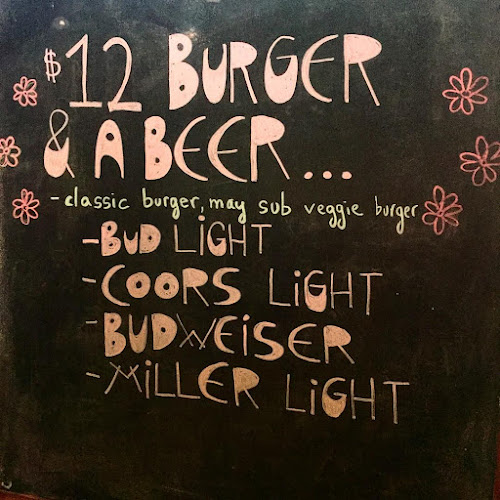 $12 BURGER
& A BEER...
-classic burger, may sub veggie burger
-BUD LIGHT
-COORS LIGHT
-BUDWEISER
-MILLER LIGHT